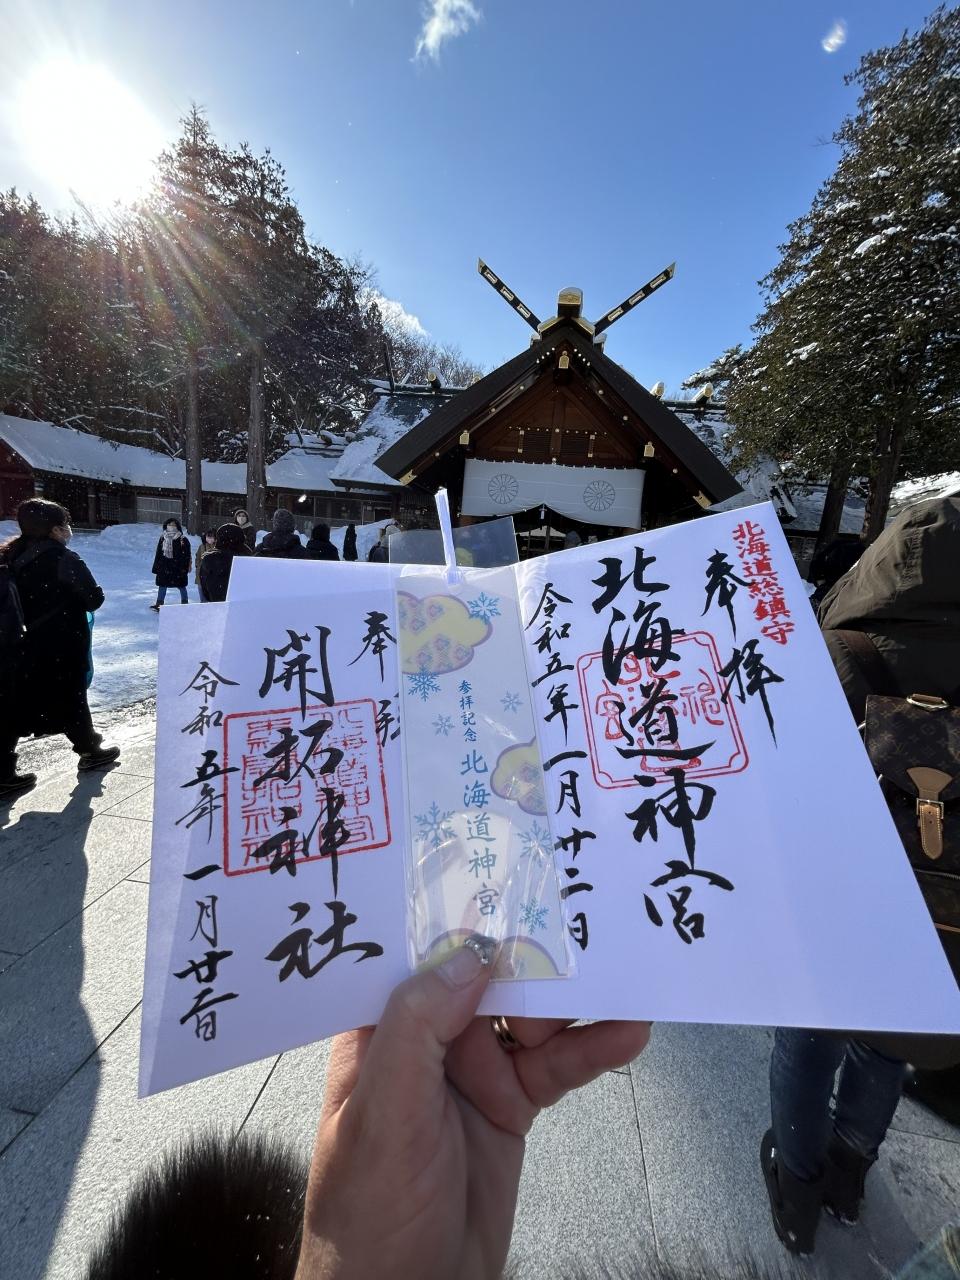 北海道総鎮守
奉拝
北海道神宮
令和五年一月廿二日
参拝記念
北海道神宮
奉拝
開拓神社
令和五年一月廿二日